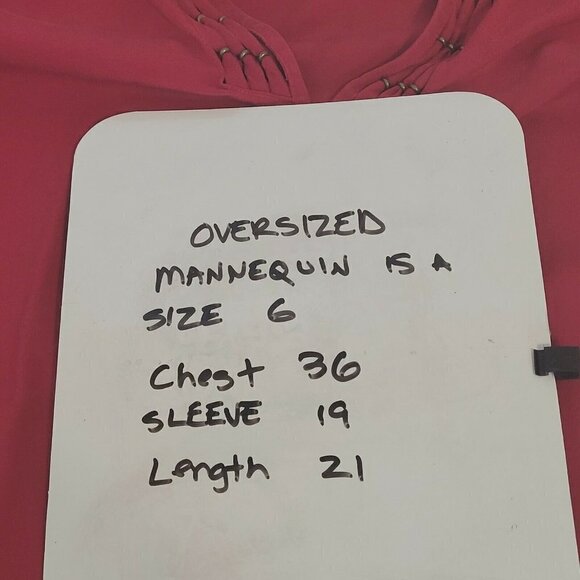 OVERSIZED
MANNEQUIN IS A
SIZE 6
Chest 36
SLEEVE 19
Length 21